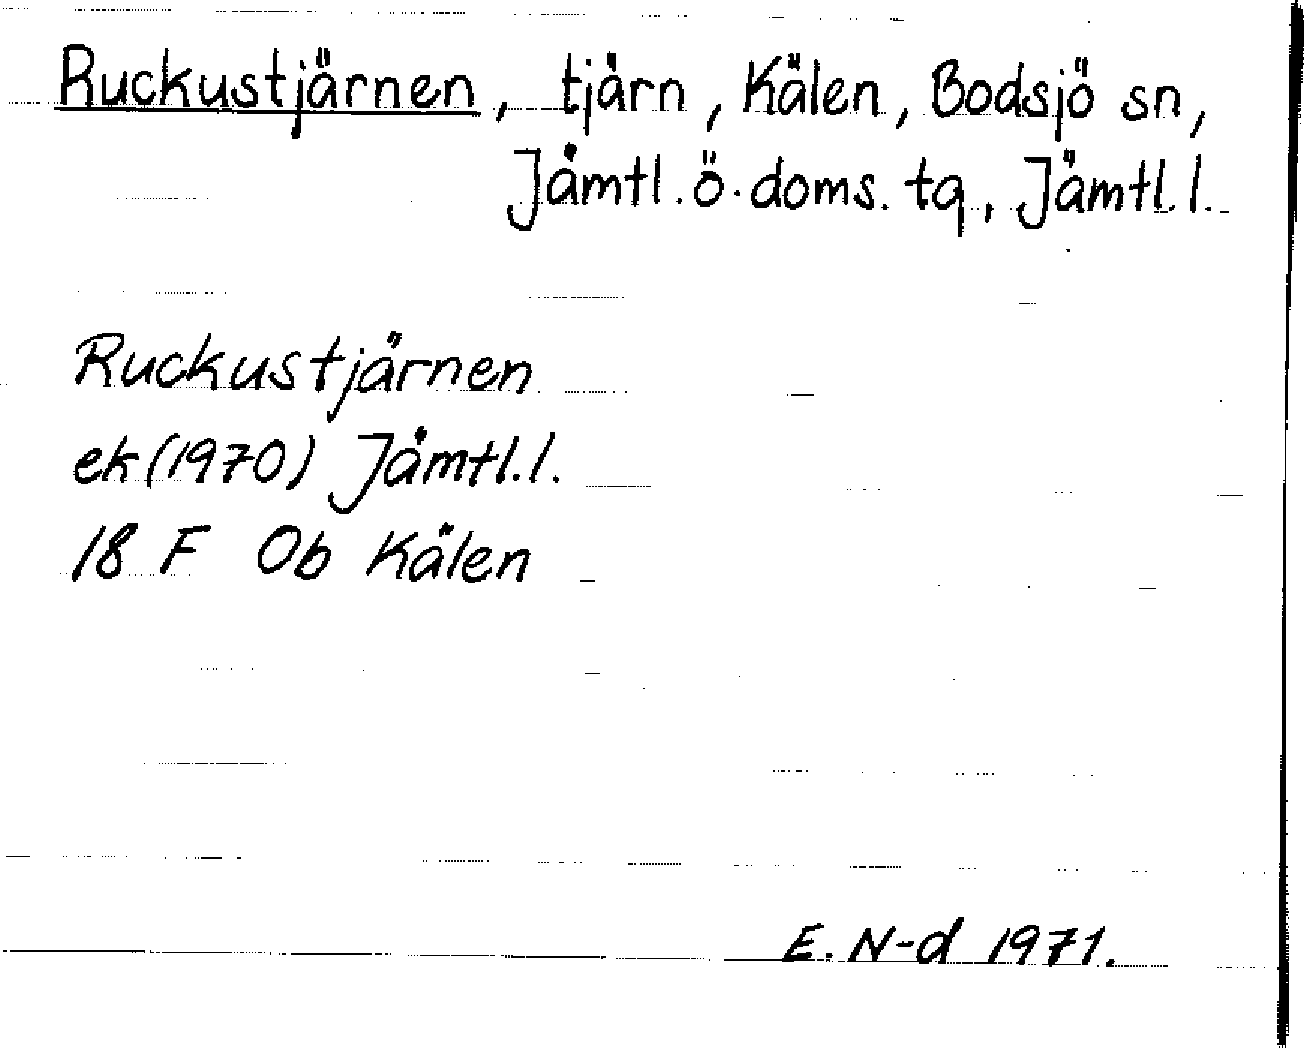 Ruckustjärnen, tjärn, Kälen, Bodsjö sn,
Jämtl. ö. doms. tg, Jämtl. l.
Ruckustjärnen
ek (1970) Jämtl. l.
18 F Ob Kälen
E. N-d 1971.